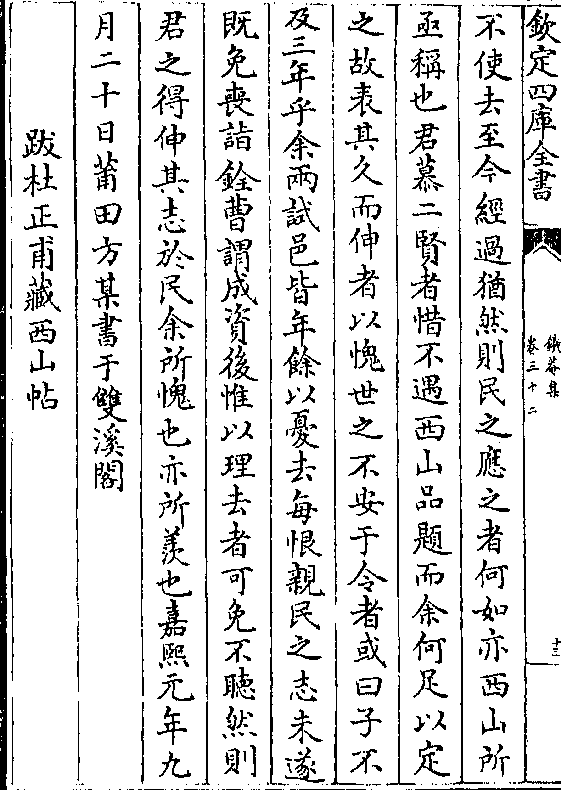 欽定四庫全書
鐵菴集
卷三十二
十三
不使去至今經過猶然則民之應之者何如亦西山所
亟稱也君慕二賢者惜不遇西山品題而余何足以定
之故表其久而伸者以愧世之不安于令者或曰子不
及三年乎余兩試邑皆年餘以憂去每恨親民之志未遂
既免喪詣銓曹謂成資後惟以理去者可免不聽然則
君之得伸其志於民余所愧也亦所羨也嘉熙元年九
月二十日莆田方某書于雙溪閣
跋杜正甫藏西山帖